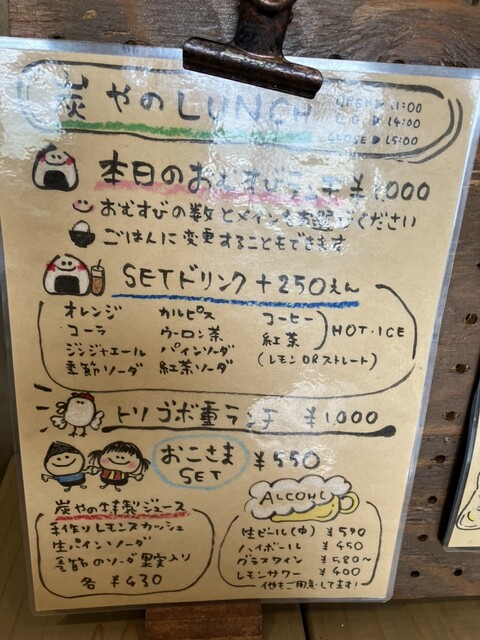 炭やのLUNCH
OPEN▷11:00
L.O▷14:00
CLOSE▷15:00
本日のおむすびランチ ¥1,000
おむすびの数とメインをお選びください
ごはんに変更することもできます
SETドリンク+250えん
オレンジ カルピス コーヒー
コーラ ウーロン茶 紅茶 HOT・ICE
ジンジャエール パインソーダ (レモンORストレート)
季節ソーダ 紅茶ソーダ
トリゴボ重ランチ ¥1,000
おこさま SET ¥550
炭やの特製ジュース
手作りレモンスカッシュ
生パインソーダ
季節のソーダ 果実入り
各 ¥430
ALCOHL
生ビール(中) ¥590
ハイボール ¥450
グラスワイン ¥580~
レモンサワー ¥400
他もご用意してます!